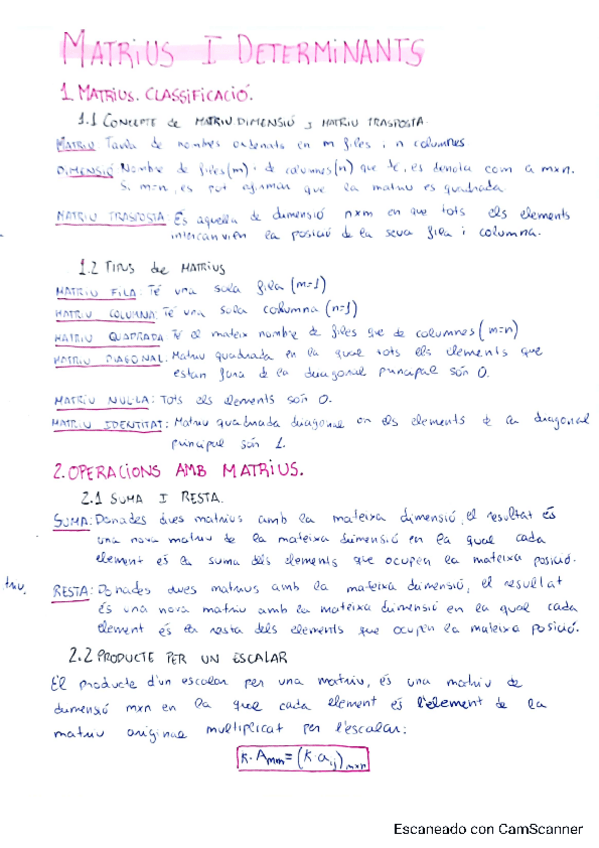 MATRIUS I DETERMINANTS
1. MATRIUS. CLASSIFICACIÓ.
1.1 CONCEPTE de MATRIU DIMENSIÓ y MATRIU TRASPOSTA
MATRIU: Taula de nombres ordenats en m files i n columnes
DIMENSIÓ Nombre de files (m) i de columnes (n) que té, es denota com a mxn.
Si m=n, es pot afirmar que la matriu es quadrada
MATRIU TRASPOSTA És aquella de dimensió nxm en que tots els elements
intercanvien la posició de la seva fila i columna.
1.2 TIPUS de MATRIUS
MATRIU FILA: Té una sola fila (m=1)
MATRIU COLUMNA: Té una sola columna (n=1)
MATRIU QUADRADA Té el mateix nombre de files que de columnes (m=n)
MATRIU DIAGONAL: Matriu quadrada en la qual tots els elements que
estan fora de la diagonal principal són 0.
MATRIU NUL·LA: Tots els elements són 0.
MATRIU IDENTITAT: Matriu quadrada diagonal on els elements de la diagonal
principal són 1.
2. OPERACIONS AMB MATRIUS.
2.1 SUMA I RESTA.
SUMA: Donades dues matrius amb la mateixa dimensió, el resultat és
una nova matriu de la mateixa dimensió en la qual cada
element és la suma dels elements que ocupen la mateixa posició.
triu.
RESTA: Donades dues matrius amb la mateixa dimensió, el resultat
és una nova matriu amb la mateixa dimensió en la qual cada
element és la resta dels elements que ocupen la mateixa posició.
2.2 PRODUCTE PER UN ESCALAR
El producte d'un escalar per una matriu, és una matriu de
dimensió mxn en la que cada element és l'element de la
matriu original multiplicat per l'escalar:
K·Amn = (K·aij)mxn
Escaneado con CamScanner